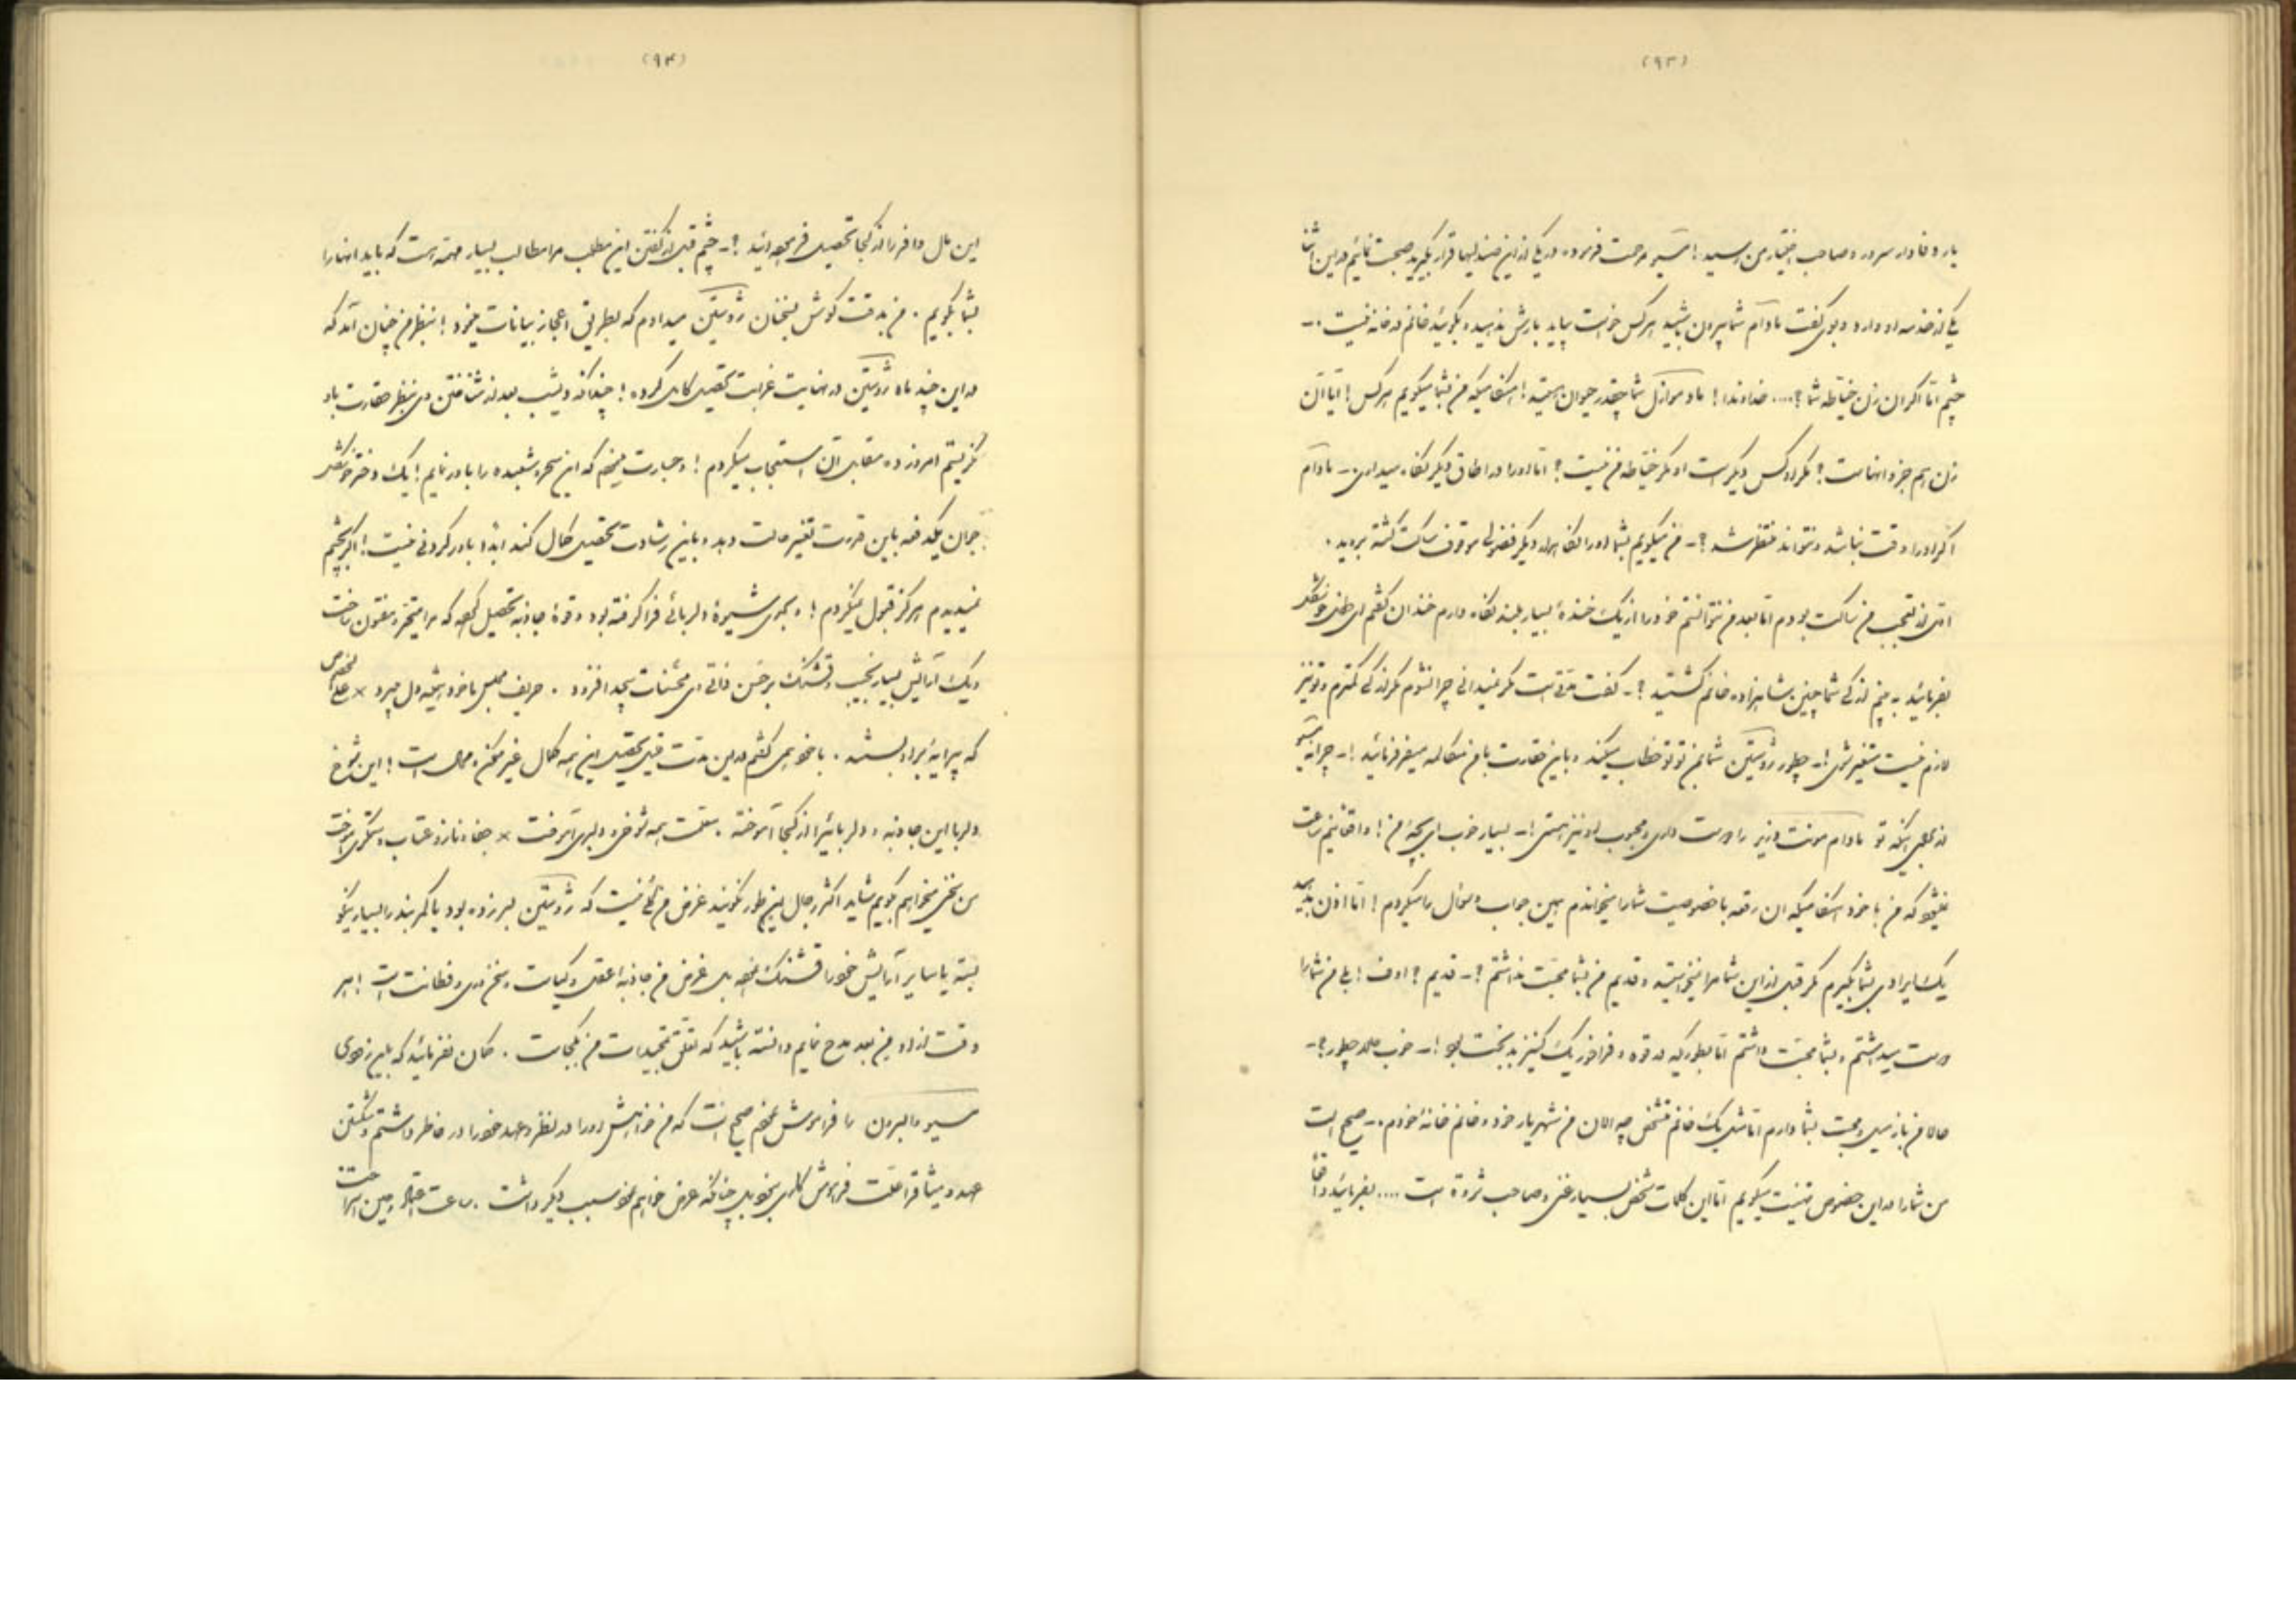 (۹۳)
یار وفادار سرور و صاحب اختیار من رسید! مسیو مرحمت فرموده در یکی از این صندلیها قرار بگیرید صحبت نمائیم در این اثنا
یکی از خدمه او وارد و بوی گفت مادام شما بیرون باشید هرکس خواست بیاید بارش ندهید و بگوئید خانم در خانه نیست .-
چشم امّا اگر آن زن خیّاطه شما؟.... خداوندا! مادموازل شما چقدر حیوان هستید! هنگامیکه من بشما میگویم هرکس! آیا آن
زن هم جزو آنها است؟ مگر او کس دیگر است او مگر خیّاطه من نیست؟ امّا او را در اطاق دیگر نگاه میداری .- مادام
اگر او را وقت نباشد و نتواند منتظر شد؟- من میگویم بشما او را نگاهدارید دیگر فضولی موقوف ساکت گشته بروید .
اوّل از تعجّب من ساکت بودم امّا بعد من نتوانستم خود را از یک خندهٔ بسیار بلند نگاه دارم خندان گفتم ای خانم خوشگل
بفرمائید ببینم از کی شما چنین شاهزاده خانم گشتید؟- گفت مدّتی است مگر نمیدانی چرا نشوم مگر از کی کمترم و تو نیز
لازم نیست متغیّر شوی!- چطور ژوستین شما بمن تو تو خطاب میکنید و باین حقارت با من مکالمه میفرمائید!- چرا نه مسیو
از برای اینکه تو مادام مونت وزیر را دوست داری و محبوب او نیز هستی!- بسیار خوب ای بچّهٔ من! واقعاً نیم ساعت
نمیشود که من با خود هنگامیکه آن رقعه با خصوصیت شما را میخواندم همین جواب و سؤال را میکردم! امّا اذن بدهید
یک ایرادی بشما بگیرم مگر قبل از این شما مرا نمیخواستید و قدیم من بشما محبّت نداشتم؟- قدیم؟ اوف! بلی من شما را
دوست میداشتم و بشما محبّت داشتم امّا بطوریکه در قوه و فراخور یک کنیز بدبخت بود!- خوب حالا چطور؟-
حالا من باز میل و محبّت بشما دارم امّا مثل یک خانم مشخّص چه الآن من شهریار خود و خانم خانهٔ خودم .- صحیح است
من شما را در این خصوص تهنیت میگویم امّا این کلمات شخص بسیار غنی و صاحب ثروة است .... بفرمائید واقعاً
(۹۴)
این مال وافر را از کجا تحصیل فرموده‌اید؟- چشم قبل از گفتن این مطلب مرا مطالب بسیار مهمّه است که باید آنها را
بشما بگویم . من بدقت گوش بسخنان ژوستین میدادم که بطریق اعجاز بیانات مینمود! بنظر من چنان آمد که
در این چند ماه ژوستین در نهایت غرابت تحصیل کامل کرده! چنانکه دیشب بعد از شناختن وی بنظر حقارت باو
نگریستم امروز در مقابل آن استعجاب میکردم! و جسارت مینمودم که این سحر و شعبده را باور نمایم! یک دختر خوشگل
جوان یکدفعه باین قدرت تغییر حالت دهد و باین رشادت تحصیل کمال کند ابداً باور کردنی نیست! اگر بچشم
نمیدیدم هرگز قبول نمیکردم! و بحدی شیوهٔ دلربائی فرا گرفته بود و قوهٔ جاذبه تحصیل کرده که مرا متحیّر و مفتون ساخت
و یک آرایش بسیار نجیب و قشنگ بر حسن ذاتی وی محسّنات بیحد افزود . حریف مجلس ما خود همیشه دل میبرد × علی الخصوص
که پیرایهٔ بر او بستند . با خود همی گفتم در این مدّت قلیل تحصیل این همه کمال غیر ممکن و محال است! این شوخ
دلربا این جاذبه و دلربائی را از کجا آموخته . معلّمت همه شوخی و دلبری آموخت × جفا و ناز و عتاب و ستمگری آموخت
من سخنی میخواهم بگویم شاید اکثر رجال این طور نگویند غرض من کلاهی نیست که ژوستین بسر زده بود یا کمربند را بسیار نیکو
بسته یا سایر آرایش خود را قشنگ نموده بل غرض من جاذبهٔ عقل و کیاست و سخن وری و فطانت است! هر
وقت از او من بعد مدح نمایم دانسته باشید که تعلّق تمجیدات من بکجاست . گمان نفرمائید که باین زودی
مسیو والبرون را فراموش نمودم صحیح است که من خواهش او را در نظر و عهد خود را در خاطر داشتم و شکستن
عهد و میثاق را علّت فراموش‌کاری نبود بل چنانکه عرض خواهم نمود سبب دیگر داشت .